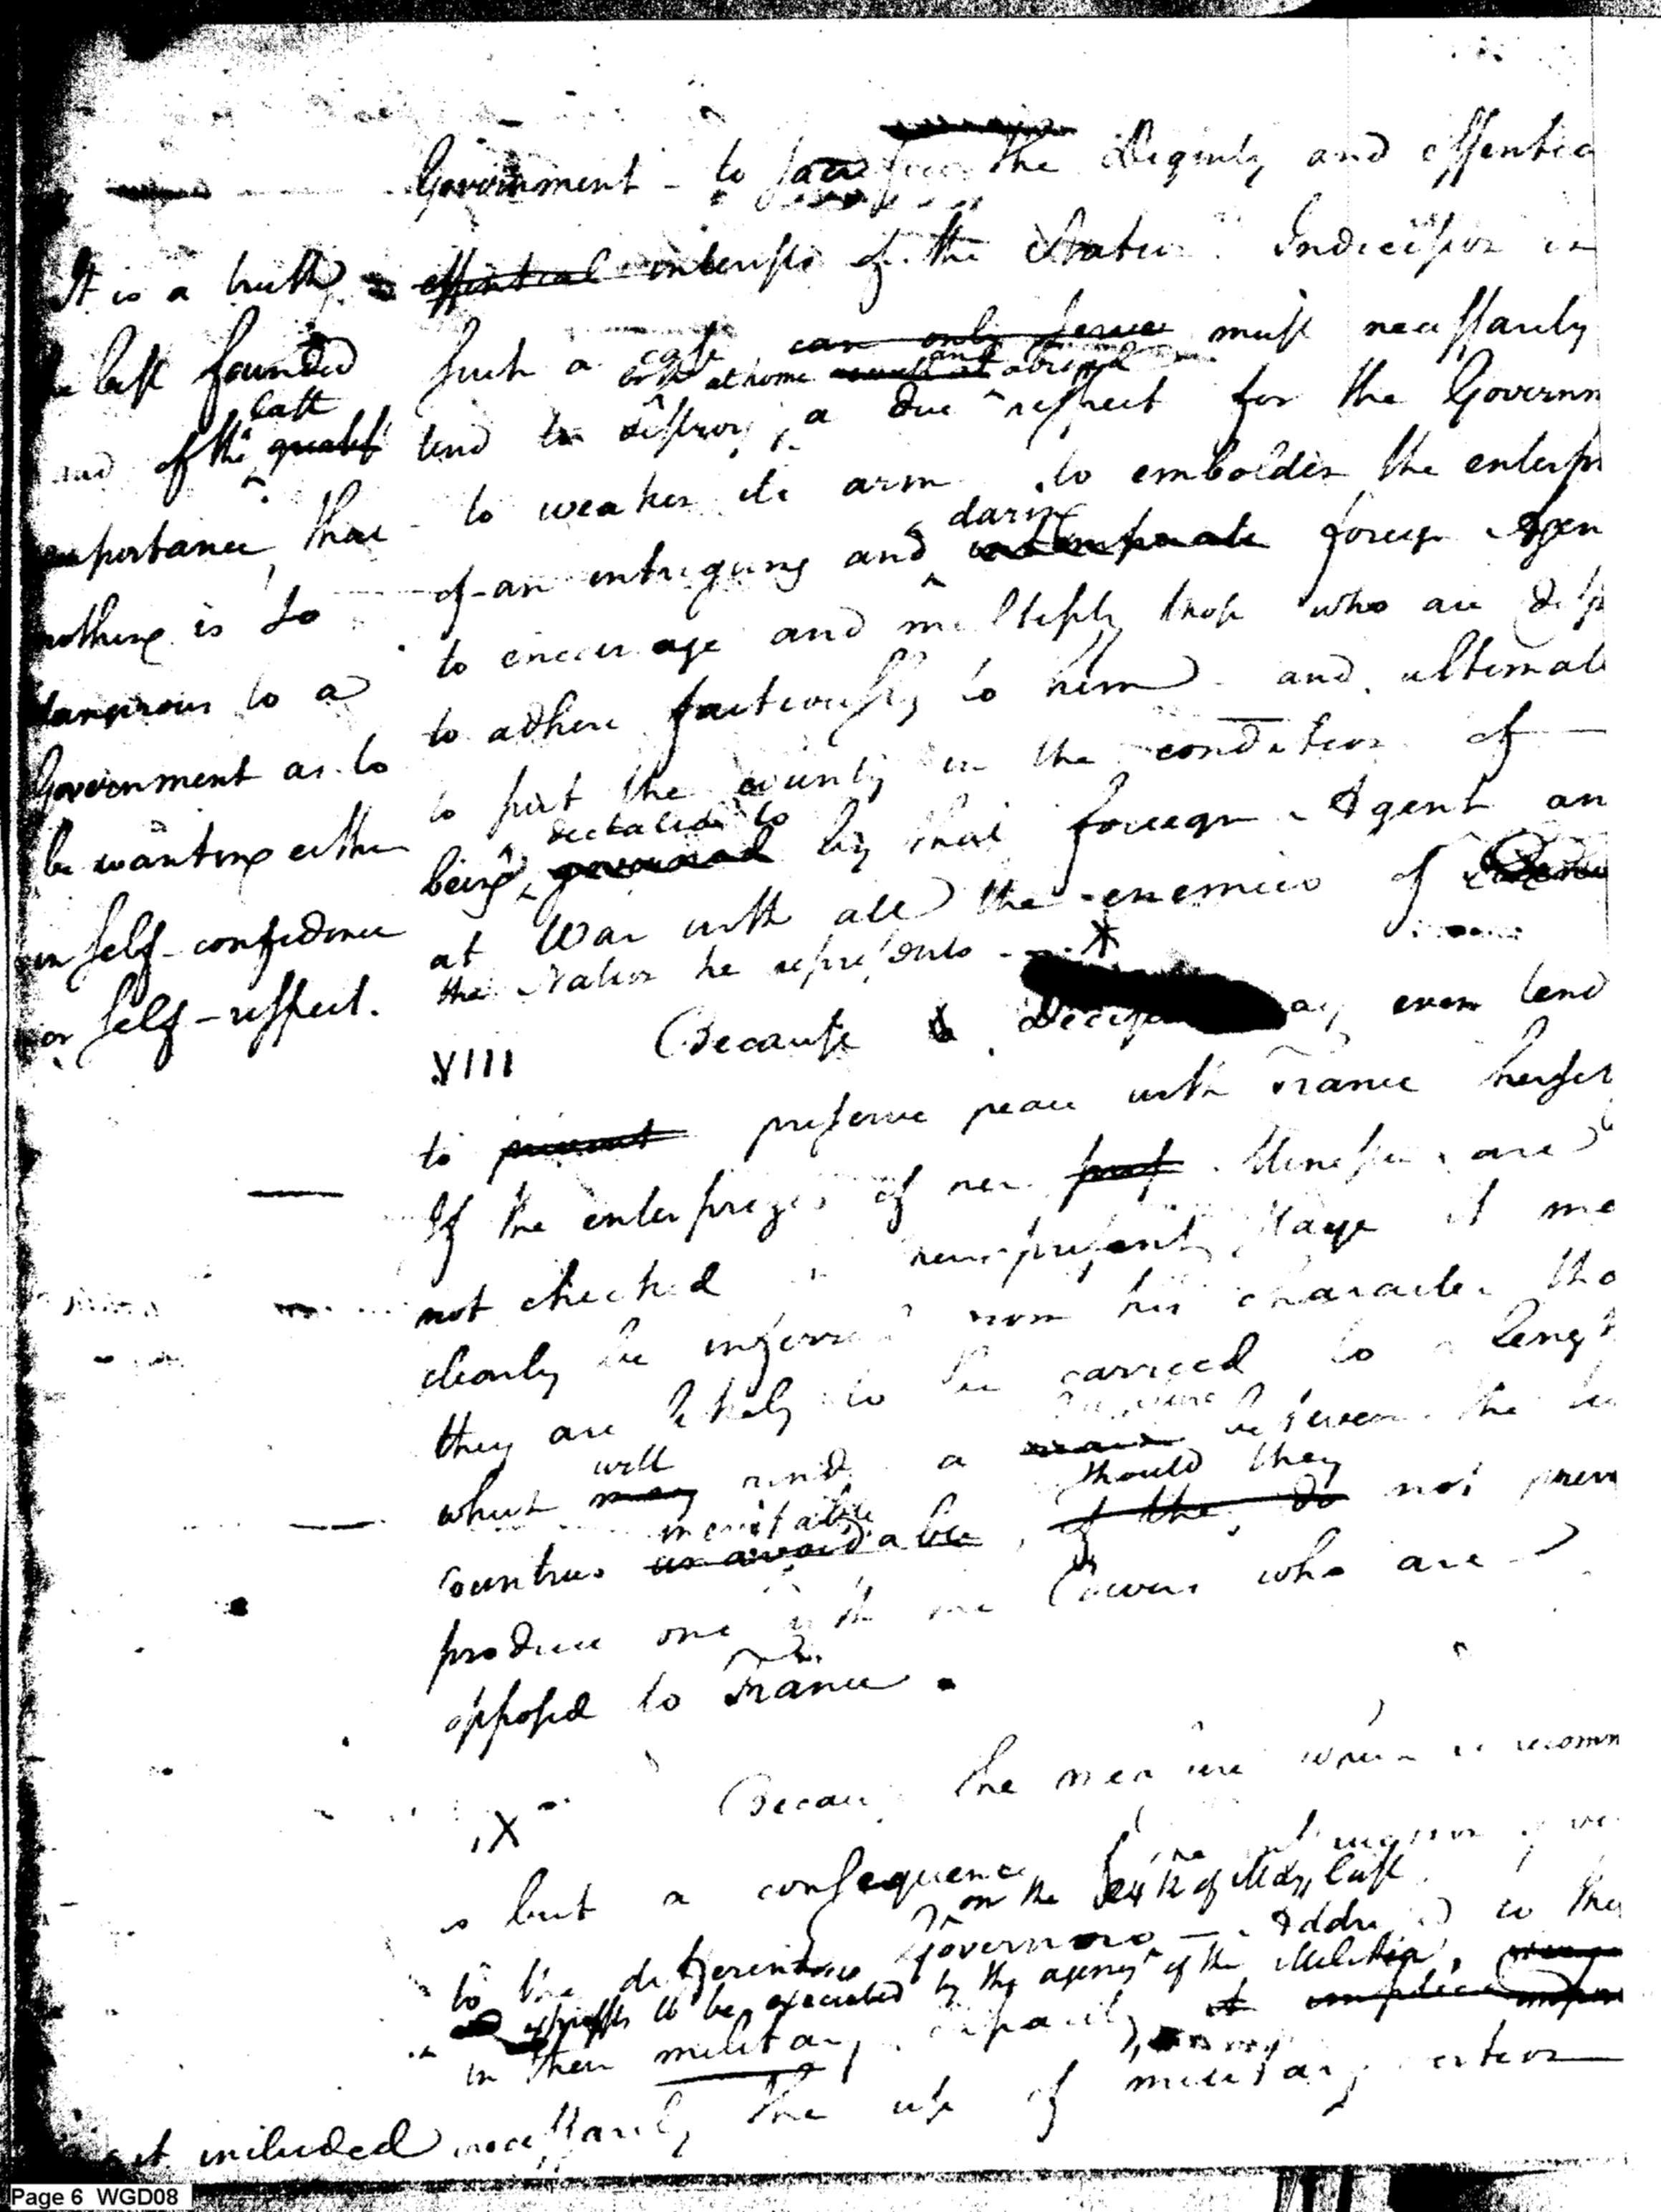 Government - to sacrifice the Dignity and essentia
essential interests of the Nation. Indecision in
such a case can only serve must necessarily
both at home as well as and abroad
tend to destroy, a due respect for the Governm
- to weaken its arm to embolden the enterpr
daring
of an intriguing and intemperate foreign Agen
to encourage and multiply those who are disp
to adhere factiously to him - and ultimate
to put the country in the condition of
dictated to
being governed by that foreign Agent an
at War with all the enemies of
the Nation he represents - *
It is a truth
best founded
last
and of the greatest
importance, that
nothing is so
dangerous to a
Government as to
be wanting either
in self-confidence
or self-respect.
VIII Because ay even tend
to prevent preserve peace with France herself
If the enterprizes of her Minister are
not checked in their present stage it ma
clearly be inferred from his character tha
they are likely to be carried to a length
will
which may rend a between the
inevitable should they
countries unavoidable, if they do not prev
produce one with the Powers who are
opposed to France.
IX Because the measure which is recomm
is but a consequence of the
on the 24th of May last
to the different Governors - Addressed to the
expressly to be executed by the agency of the Militia,
in their military capacity, it implied
it included necessarily the use of military
Page 6 WGD08